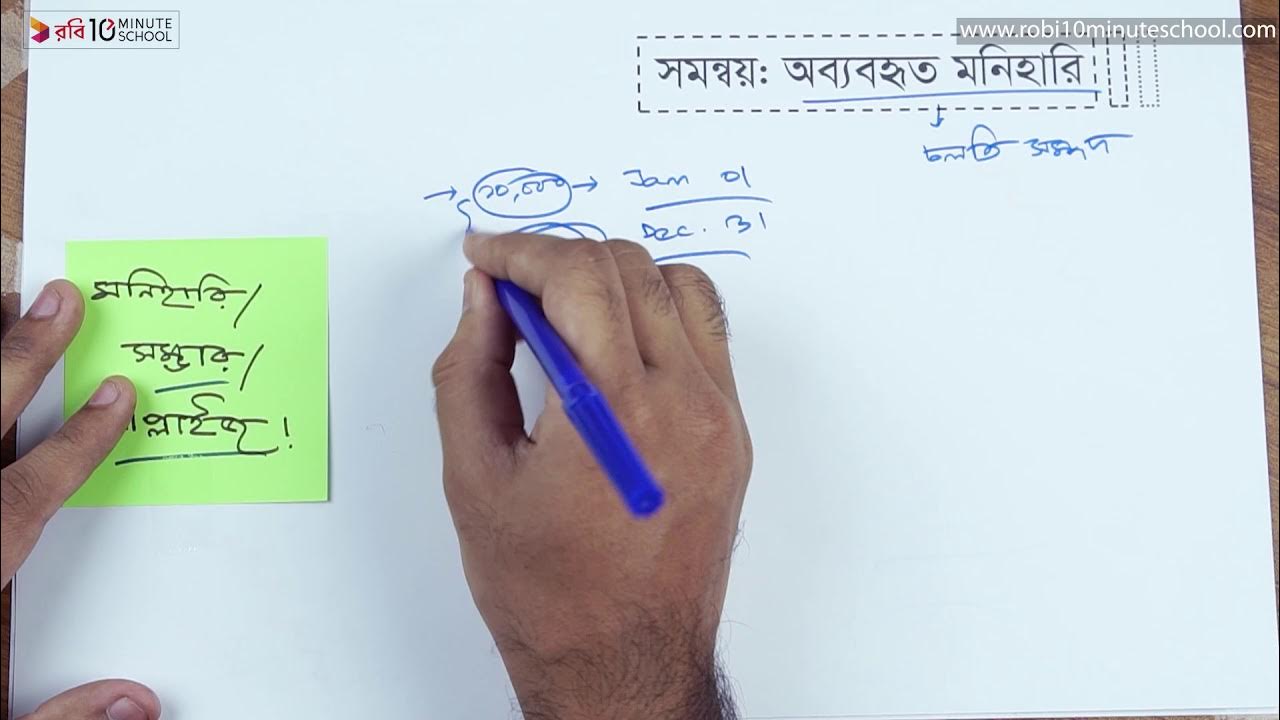 রবি 10 MINUTE SCHOOL
www.robi10minuteschool.com
সমন্বয়: অব্যবহৃত মনিহারি
চলতি সম্পদ
১০,০০০ → Jan 01
Dec. 31
মনিহারি/
সম্ভার/
প্লাইজ!